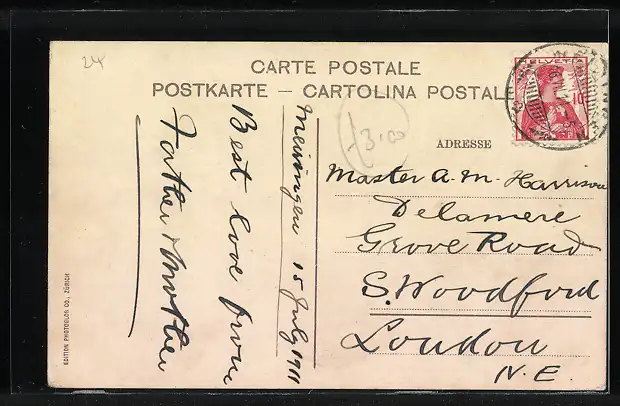 24
CARTE POSTALE
POSTKARTE – CARTOLINA POSTALE
HELVETIA
10
3.00
ADRESSE
Meiringen 15 July 1911
Best love from
Father & Mother
Master A. M. Harrison
Delamere
Grove Road
S. Woodford
London
N. E.
EDITION PHOTOGLOB CO., ZÜRICH